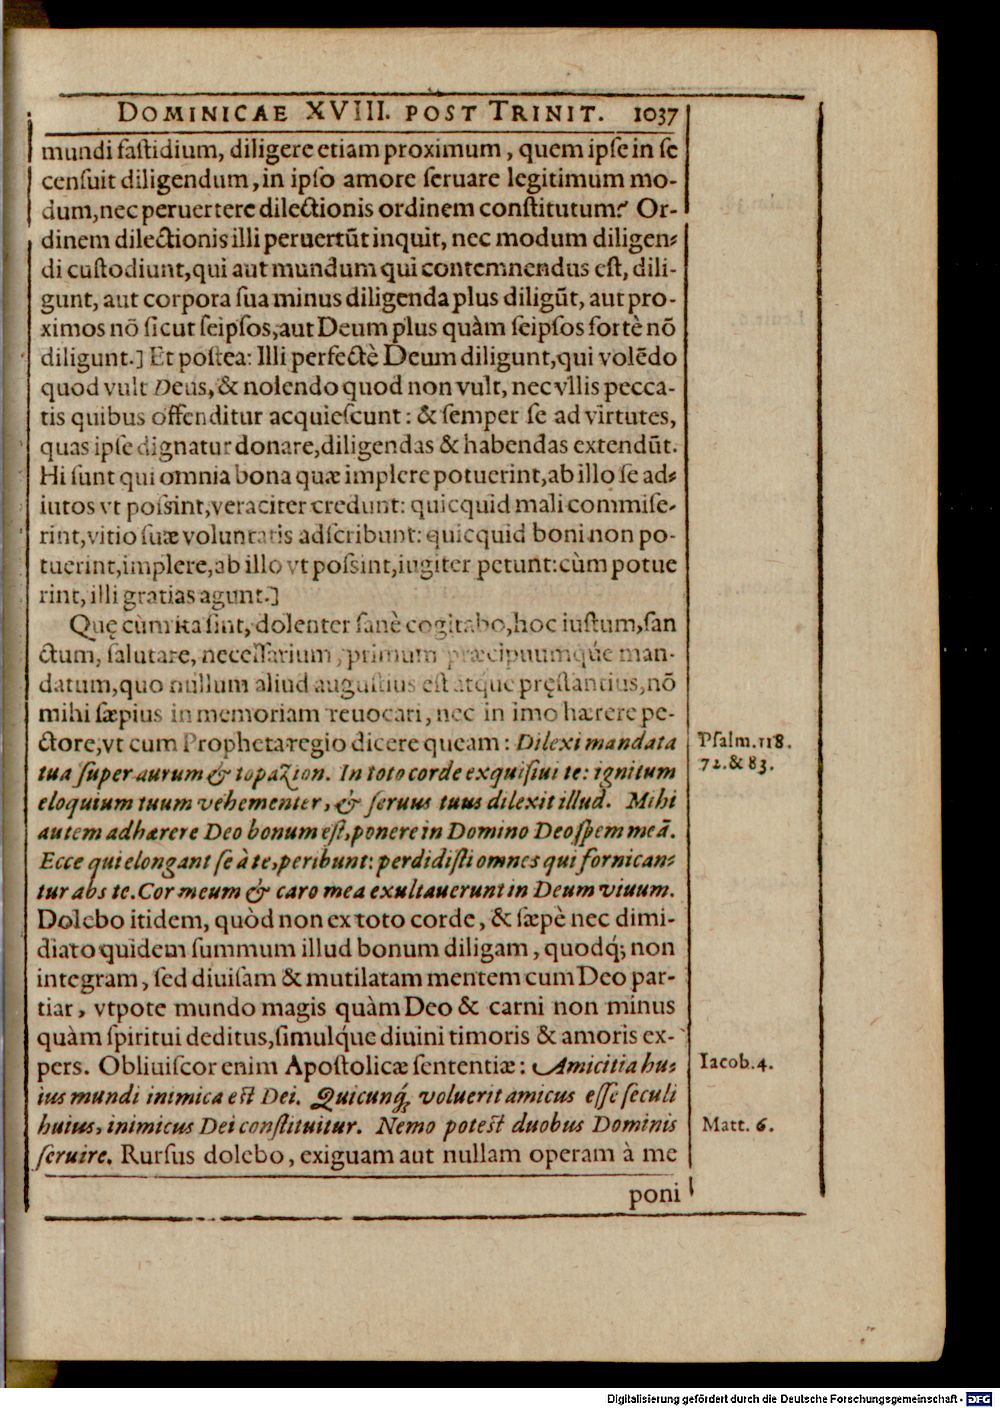 DOMINICAE XVIII. POST TRINIT. 1037
mundi fastidium, diligere etiam proximum, quem ipse in se
censuit diligendum, in ipso amore seruare legitimum mo-
dum, nec peruertere dilectionis ordinem constitutum? Or-
dinem dilectionis illi peruertūt inquit, nec modum diligen-
di custodiunt, qui aut mundum qui contemnendus est, dili-
gunt, aut corpora sua minus diligenda plus diligūt, aut pro-
ximos nō sicut seipsos, aut Deum plus quàm seipsos fortè nō
diligunt.] Et postea: Illi perfectè Deum diligunt, qui volēdo
quod vult Deus, & nolendo quod non vult, nec vllis pecca-
tis quibus offenditur acquiescunt: & semper se ad virtutes,
quas ipse dignatur donare, diligendas & habendas extendūt.
Hi sunt qui omnia bona quæ implere potuerint, ab illo se ad-
iutos vt possint, veraciter credunt: quicquid mali commise-
rint, vitio suæ voluntatis adscribunt: quicquid boni non po-
tuerint, implere, ab illo vt possint, iugiter petunt: cùm potue
rint, illi gratias agunt.]
Quę cùm ita sint, dolenter sanè cogitabo, hoc iustum, san
ctum, salutare, necessarium, primum præcipuumq́ue man-
datum, quo nullum aliud augustius est atque pręstantius, nō
mihi sæpius in memoriam reuocari, nec in imo hærere pe-
ctore, vt cum Propheta regio dicere queam: Dilexi mandata
tua super aurum & topazion. In toto corde exquisiui te: ignitum
eloquium tuum vehementer, & seruus tuus dilexit illud. Mihi
autem adhærere Deo bonum est, ponere in Domino Deo spem meā.
Ecce qui elongant se à te, peribunt: perdidisti omnes qui fornican-
tur abs te. Cor meum & caro mea exultauerunt in Deum viuum.
Dolebo itidem, quòd non ex toto corde, & sæpè nec dimi-
diato quidem summum illud bonum diligam, quodq́; non
integram, sed diuisam & mutilatam mentem cum Deo par-
tiar, vtpote mundo magis quàm Deo & carni non minus
quàm spiritui deditus, simulq́ue diuini timoris & amoris ex-
pers. Obliuiscor enim Apostolicæ sententiæ: Amicitia hu-
ius mundi inimica est Dei. Quicunq́; voluerit amicus esse seculi
huius, inimicus Dei constituitur. Nemo potest duobus Dominis
seruire. Rursus dolebo, exiguam aut nullam operam à me
poni
Psalm. 118.
72. & 83.
Iacob. 4.
Matt. 6.
Digitalisierung gefördert durch die Deutsche Forschungsgemeinschaft - DFG